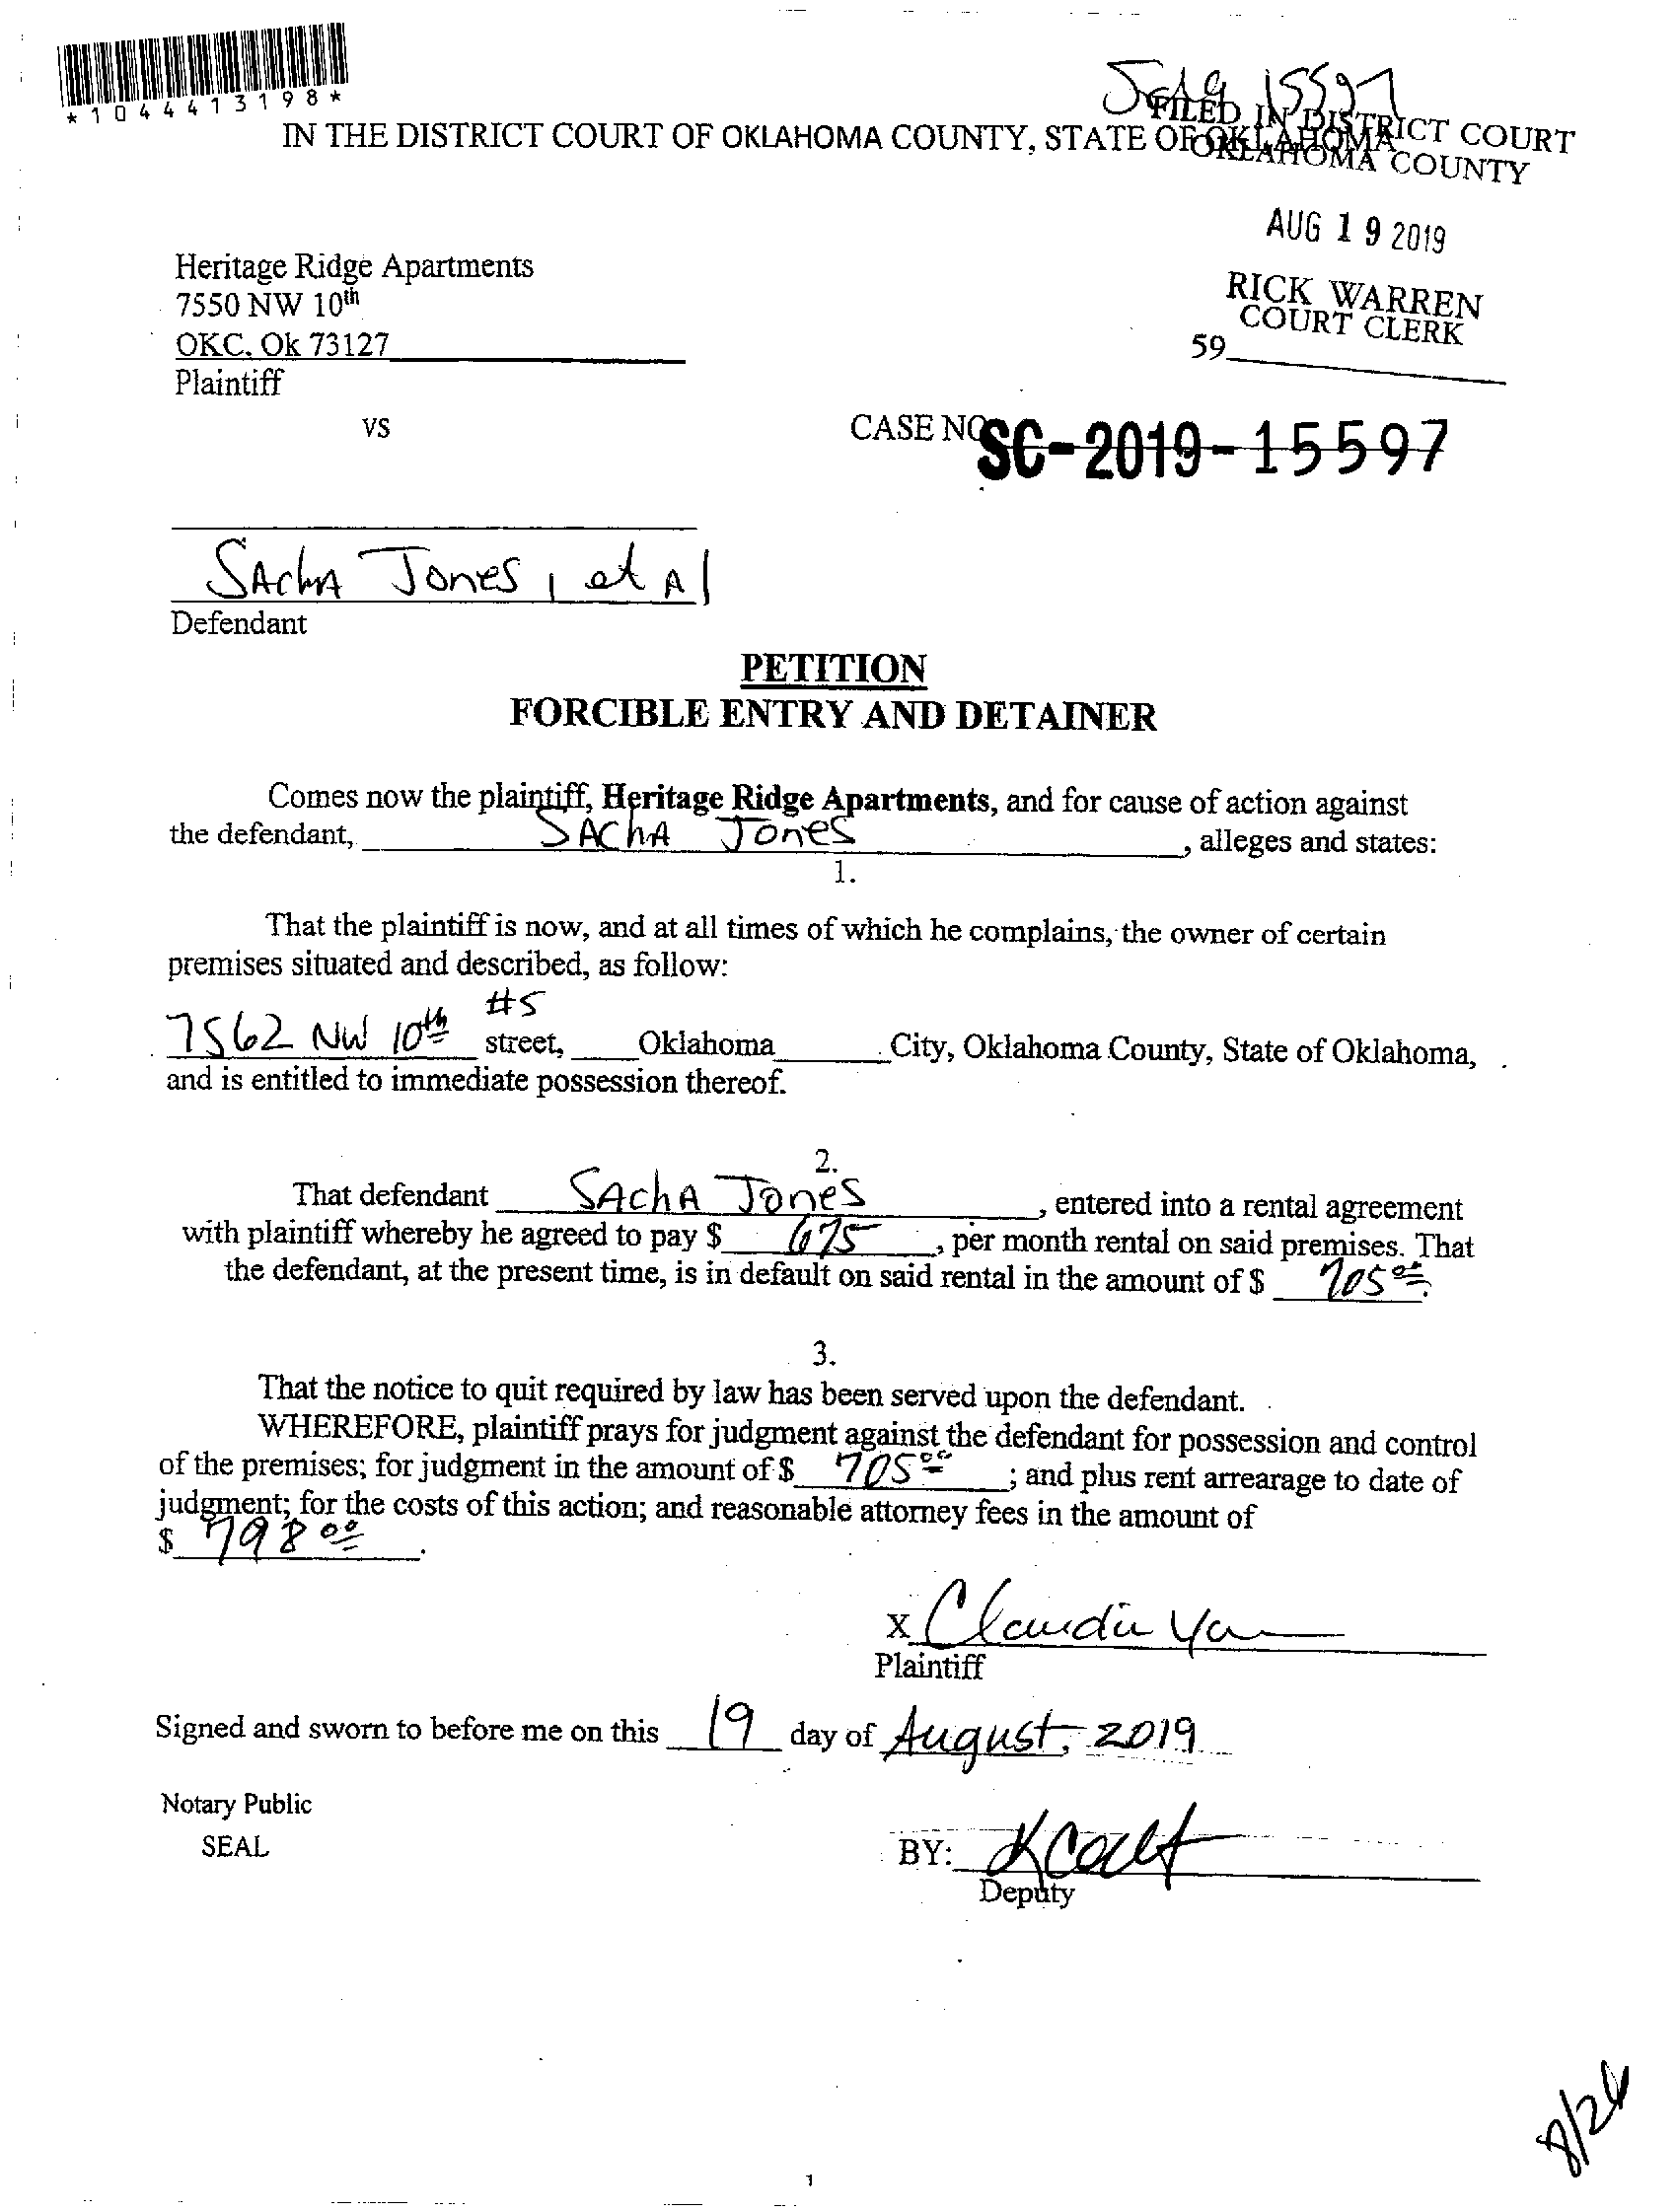 *1044413198*
15597
FILED IN DISTRICT COURT
IN THE DISTRICT COURT OF OKLAHOMA COUNTY, STATE OF OKLAHOMA
OKLAHOMA COUNTY
AUG 19 2019
Heritage Ridge Apartments
7550 NW 10th
OKC, Ok 73127
Plaintiff
RICK WARREN
COURT CLERK
59
vs
CASE NO SC-2019-15597
SAchA Jones, et Al
Defendant
PETITION
FORCIBLE ENTRY AND DETAINER
Comes now the plaintiff, Heritage Ridge Apartments, and for cause of action against
the defendant, SAchA Jones, alleges and states:
1.
That the plaintiff is now, and at all times of which he complains, the owner of certain
premises situated and described, as follow:
#5
7562 NW 10th street, Oklahoma City, Oklahoma County, State of Oklahoma,
and is entitled to immediate possession thereof.
2.
That defendant SAchA Jones, entered into a rental agreement
with plaintiff whereby he agreed to pay $ 675, per month rental on said premises. That
the defendant, at the present time, is in default on said rental in the amount of $ 705 00.
3.
That the notice to quit required by law has been served upon the defendant.
WHEREFORE, plaintiff prays for judgment against the defendant for possession and control
of the premises; for judgment in the amount of $ 705 00; and plus rent arrearage to date of
judgment; for the costs of this action; and reasonable attorney fees in the amount of
$ 798 00.
x Claudia
Plaintiff
Signed and sworn to before me on this 19 day of August, 2019
Notary Public
SEAL
BY:
Deputy
8/26
1